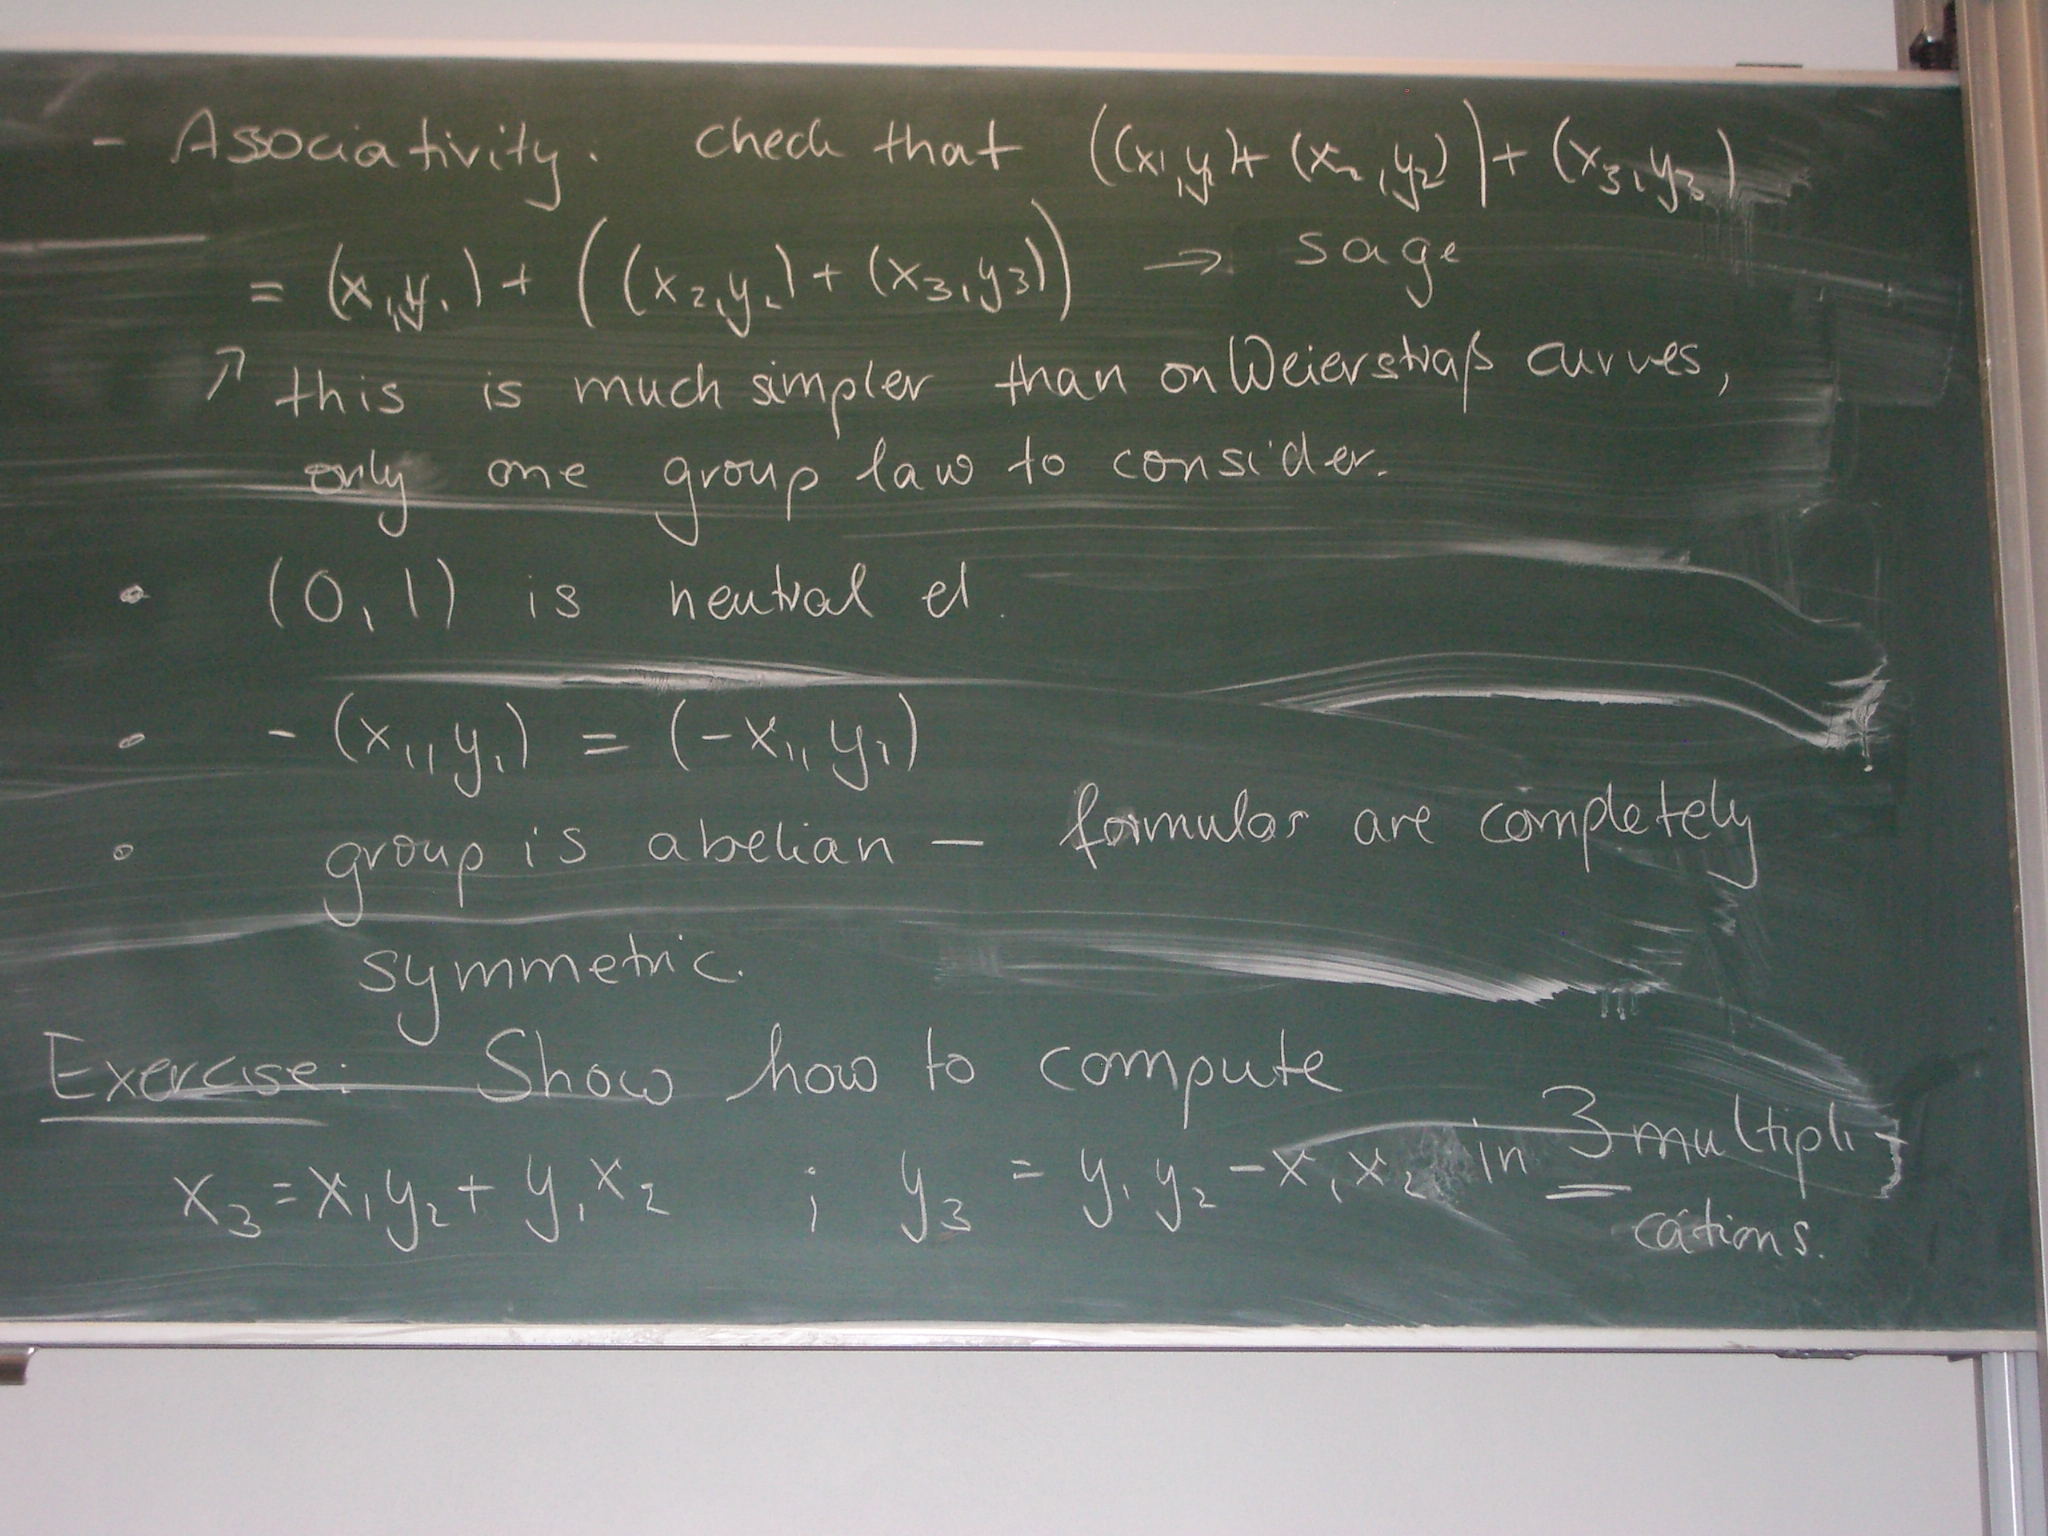 - Associativity. check that ((x₁,y₁)+(x₂,y₂))+(x₃,y₃)
= (x₁,y₁)+((x₂,y₂)+(x₃,y₃)) → sage
↗ this is much simpler than on Weierstraß curves,
only one group law to consider.
• (0,1) is neutral el.
• -(x₁,y₁) = (-x₁,y₁)
• group is abelian — formulas are completely
symmetric.
Exercise: Show how to compute
x₃=x₁y₂+y₁x₂ ; y₃=y₁y₂-x₁x₂ in 3 multipli-
cations.